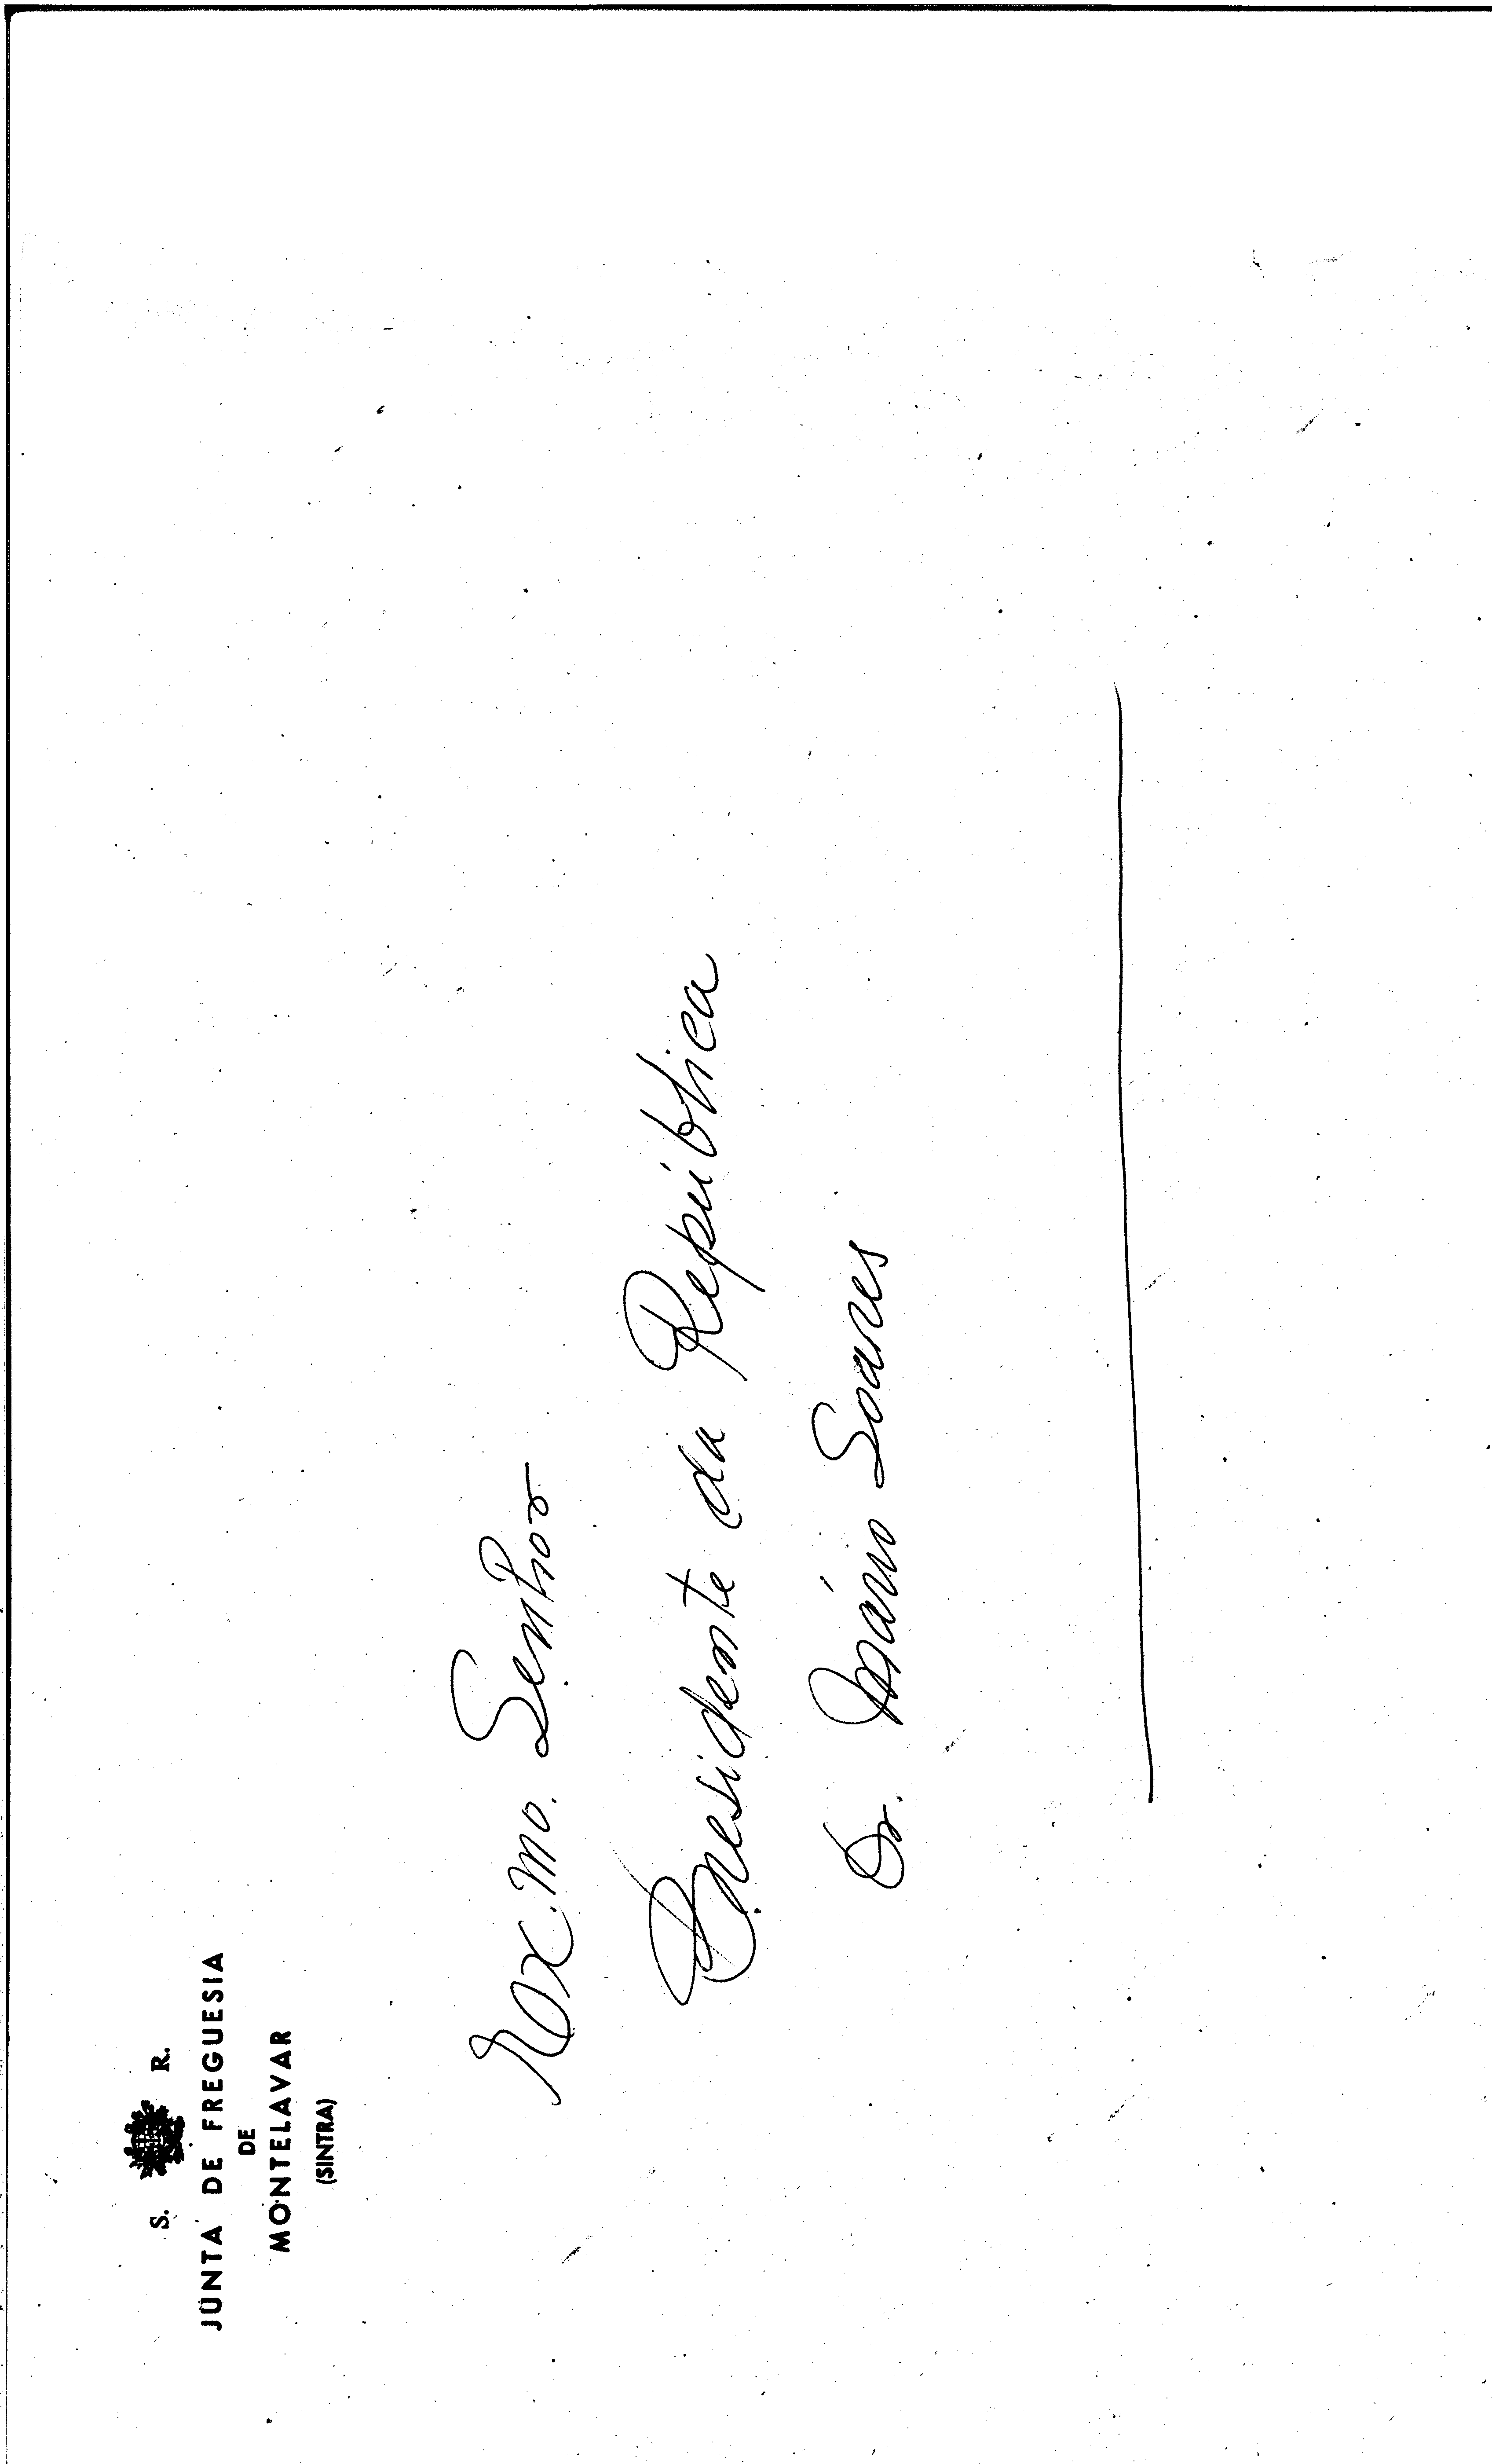 S. R.
JUNTA DE FREGUESIA
DE
MONTELAVAR
(SINTRA)
Exc.mo. Senhor
Presidente da República
Dr. Mário Soares